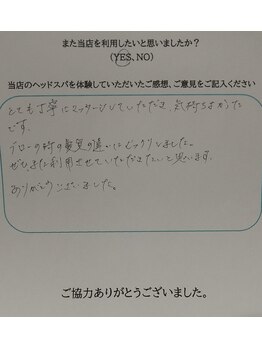 また当店を利用したいと思いましたか？
(YES、NO)
当店のヘッドスパを体験していただいたご感想、ご意見をご記入ください
とても丁寧にマッサージしていただき、気持ちよかった
です。
ブローの時の髪質の違いにビックリしました。
ぜひまた利用させていただきたいと思います。
ありがとうございました。
ご協力ありがとうございました。